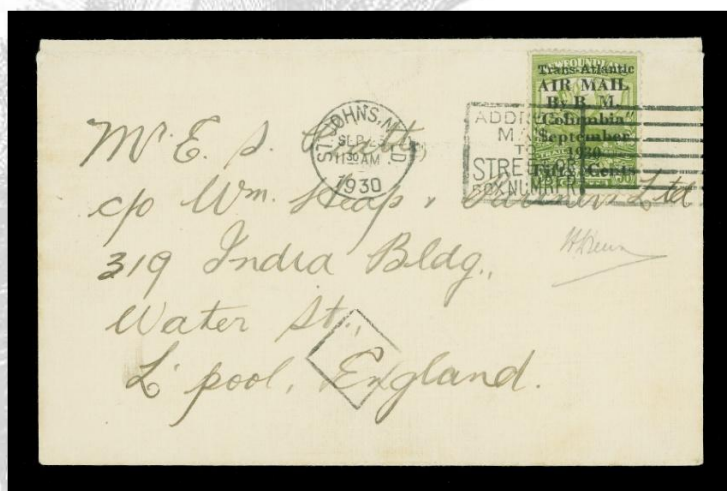 NEWFOUNDLAND
Trans-Atlantic
AIR MAIL
By B. M.
"Columbia"
September
1930
Fifty Cents
ST. JOHN'S, NFLD
SEP
11 30 AM
1930
ADDRESS
MAIL
TO
STREET OR
BOX NUMBER
Mr. E. S.
c/o Wm. Heap & Partners Ltd
319 India Bldg.,
Water St.,
L'pool, England.